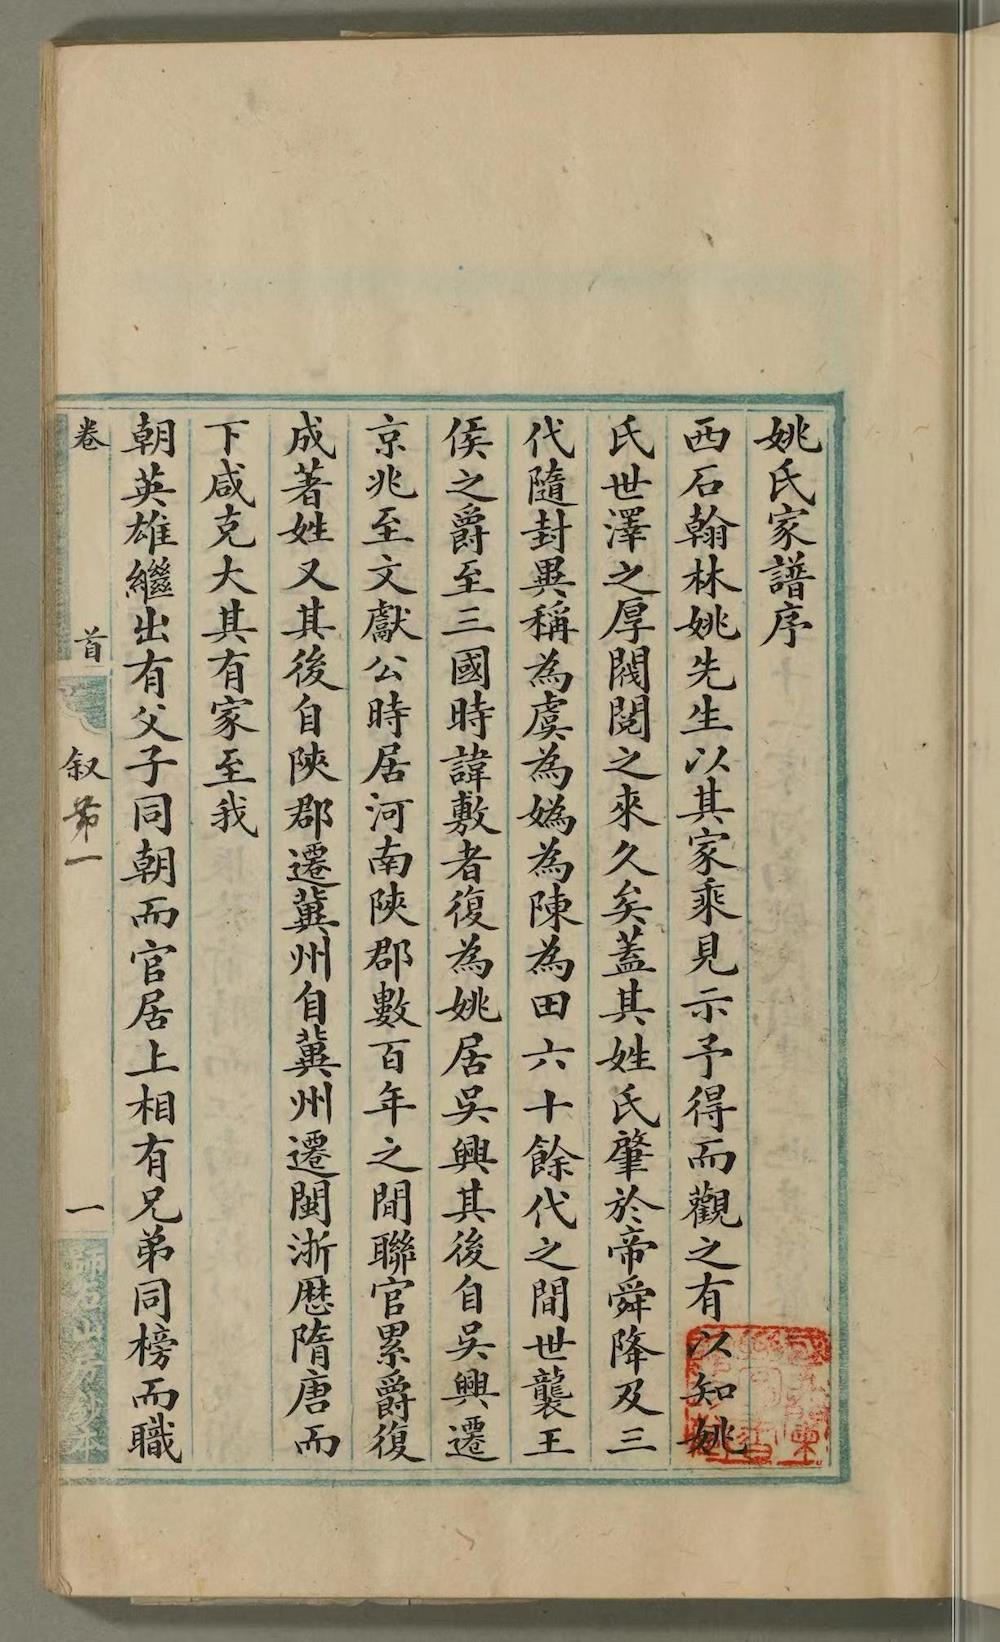 姚氏家譜序
西石翰林姚先生以其家乘見示予得而觀之有以知姚
氏世澤之厚閥閱之來久矣蓋其姓氏肇於帝舜降及三
代隨封異稱為虞為媯為陳為田六十餘代之間世襲王
侯之爵至三國時諱敷者復為姚居吳興其後自吳興遷
京兆至文獻公時居河南陝郡數百年之間聯官累爵復
成著姓又其後自陝郡遷冀州自冀州遷閩浙歷隋唐而
下咸克大其有家至我
朝英雄繼出有父子同朝而官居上相有兄弟同榜而職
卷 首 叙第一 一
師石山房鈔本